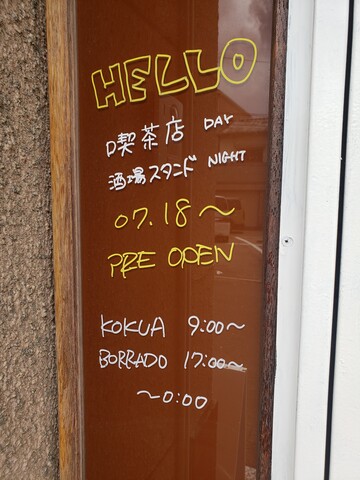 HELLO
D喫茶店 DAY
酒場スタンド NIGHT
07.18〜
PRE OPEN
KOKUA 9:00〜
BORRADO 17:00〜
〜0:00